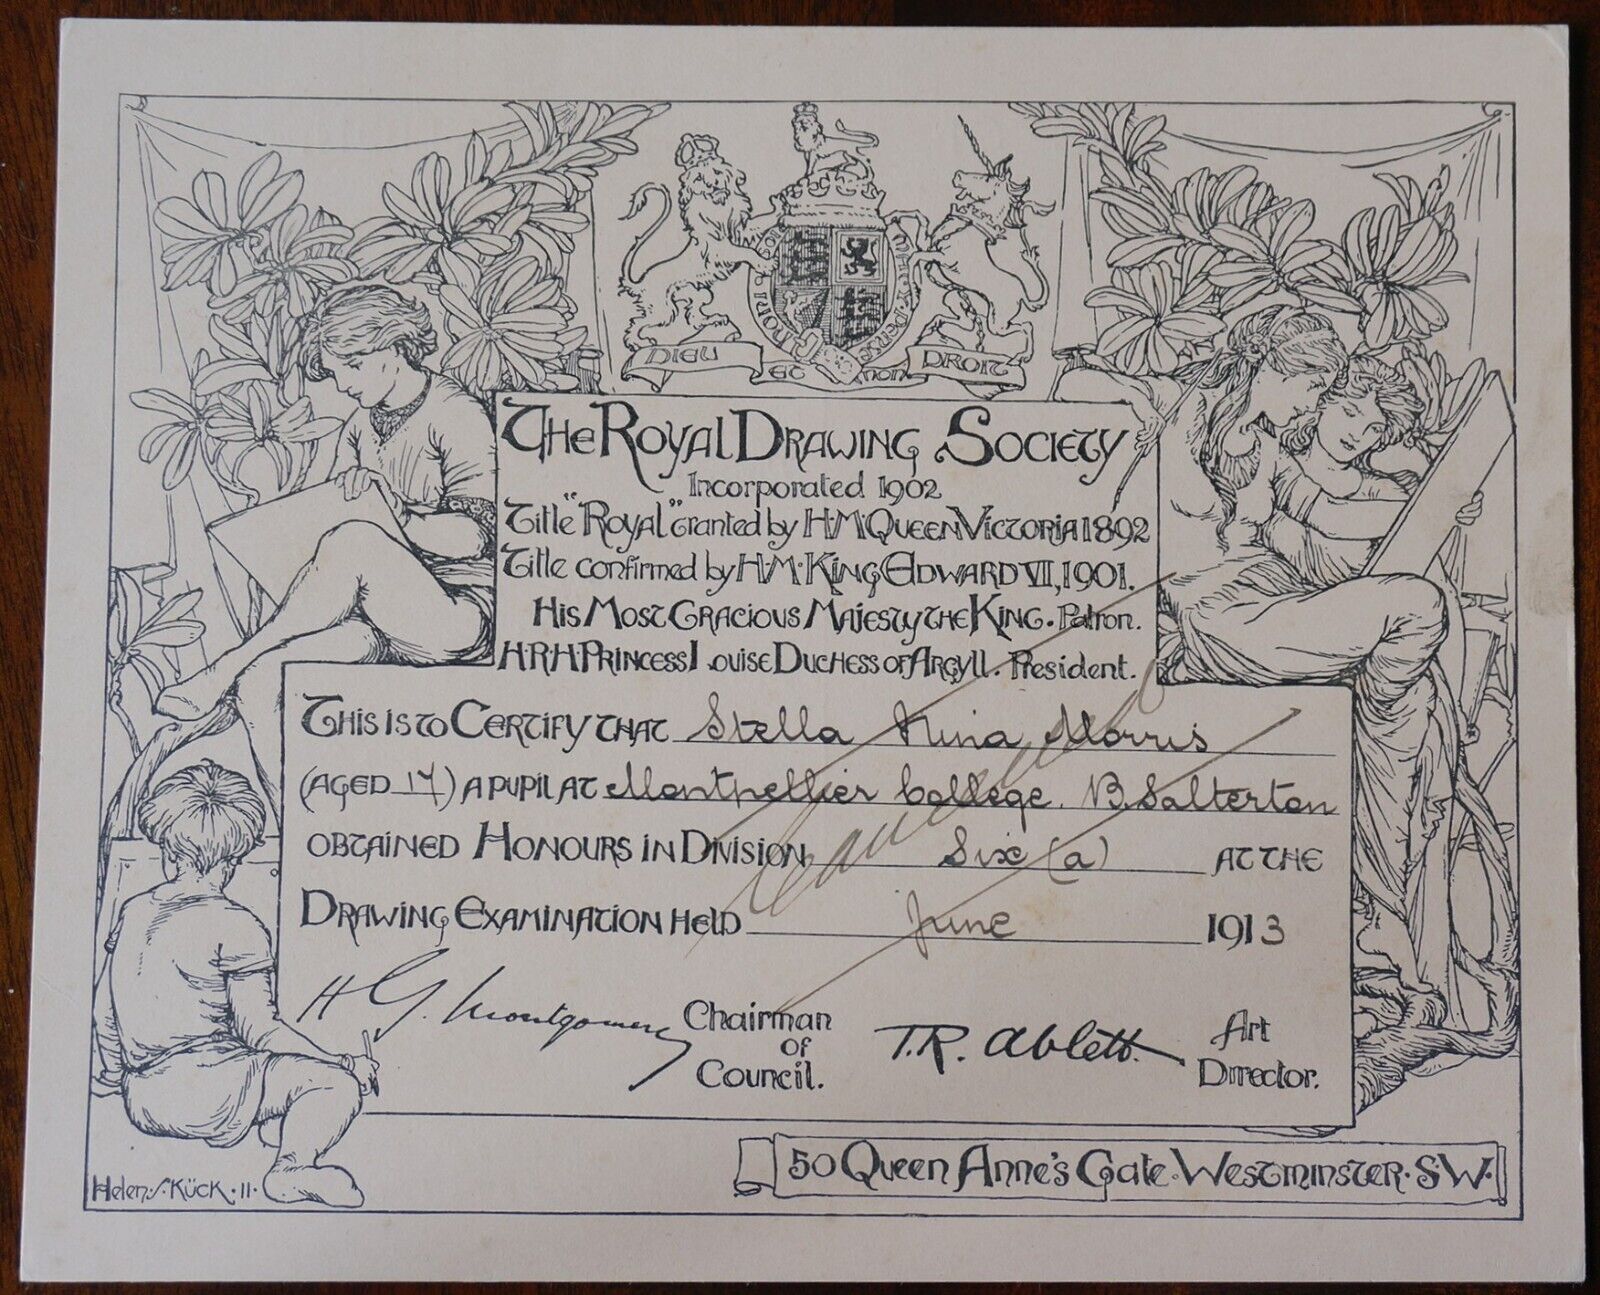 HONI SOIT QUI MAL Y PENSE
DIEU ET MON DROIT
The Royal Drawing Society
Incorporated 1902
Title "Royal" granted by H.M. Queen Victoria 1892
Title confirmed by H.M. King Edward VII, 1901.
His Most Gracious Majesty the King. Patron.
H.R.H Princess Louise Duchess of Argyll. President.
This is to Certify that Stella Nina Morris
(aged 17) a pupil at Montpellier College. B. Salterton
obtained Honours in Division Six (a) at the
Drawing Examination held June 1913
Cancelled
H G. Montgomery Chairman of Council.
T.R. Ablett. Art Director.
50 Queen Anne's Gate. Westminster. S.W.
Helen. S. Kück. 11.